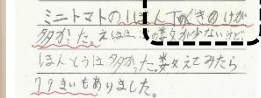 ミニトマトのはほん下めきのけが
多かった。えはは、数が少ないけど
ほんとうは多かった。数えてみたら
79まいもありました。